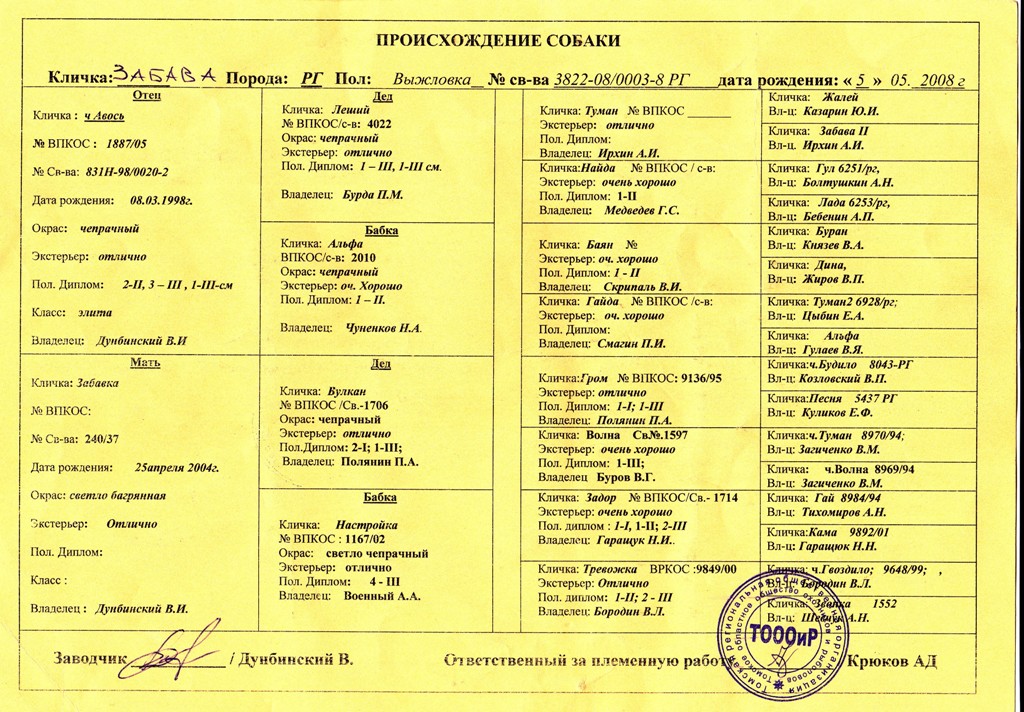 ПРОИСХОЖДЕНИЕ СОБАКИ
Кличка: ЗАБАВА Порода: РГ Пол: Выжловка № св-ва 3822-08/0003-8 РГ дата рождения: « 5 » 05. 2008 г
Отец
Кличка : ч Авось
№ ВПКОС : 1887/05
№ Св-ва: 831Н-98/0020-2
Дата рождения: 08.03.1998г.
Окрас: чепрачный
Экстерьер: отлично
Пол. Диплом: 2-II, 3 – III , 1-III-см
Класс: элита
Владелец: Дунбинский В.И
Мать
Кличка: Забавка
№ ВПКОС:
№ Св-ва: 240/37
Дата рождения: 25апреля 2004г.
Окрас: светло багрянная
Экстерьер: Отлично
Пол. Диплом:
Класс :
Владелец : Дунбинский В.И.
Дед
Кличка: Леший
№ ВПКОС/с-в: 4022
Окрас: чепрачный
Экстерьер: отлично
Пол. Диплом: 1 – III, 1-III см.
Владелец: Бурда П.М.
Бабка
Кличка: Альфа
ВПКОС/с-в: 2010
Окрас: чепрачный
Экстерьер: оч. Хорошо
Пол. Диплом: 1 – II.
Владелец: Чуненков Н.А.
Дед
Кличка: Булкан
№ ВПКОС /Св.-1706
Окрас: чепрачный
Экстерьер: отлично
Пол.Диплом: 2-I; 1-III;
Владелец: Полянин П.А.
Бабка
Кличка: Настройка
№ ВПКОС : 1167/02
Окрас: светло чепрачный
Экстерьер: отлично
Пол. Диплом: 4 - III
Владелец: Военный А.А.
Кличка: Туман № ВПКОС
Экстерьер: отлично
Пол. Диплом:
Владелец: Ирхин А.И.
Кличка:Найда № ВПКОС / с-в:
Экстерьер: очень хорошо
Пол. Диплом: 1-II
Владелец: Медведев Г.С.
Кличка: Баян №
Экстерьер: оч. хорошо
Пол. Диплом: 1 - II
Владелец: Скрипаль В.И.
Кличка: Гайда № ВПКОС /с-в:
Экстерьер: оч. хорошо
Пол. Диплом:
Владелец: Смагин П.И.
Кличка:Гром № ВПКОС: 9136/95
Экстерьер: отлично
Пол. Диплом: 1-I; 1-III
Владелец: Полянин П.А.
Кличка: Волна Св№.1597
Экстерьер: очень хорошо
Пол. Диплом: 1-III;
Владелец Буров В.Г.
Кличка: Задор № ВПКОС/Св.- 1714
Экстерьер: очень хорошо
Пол. диплом : 1-I, 1-II; 2-III
Владелец: Гаращук Н.И.
Кличка: Тревожка ВРКОС :9849/00
Экстерьер: Отлично
Пол. диплом: 1-II; 2 - III
Владелец: Бородин В.Л.
Кличка: Жалей
Вл-ц: Казарин Ю.И.
Кличка: Забава II
Вл-ц. Ирхин А.И.
Кличка: Гул 6251/рг,
Вл-ц: Болтушкин А.Н.
Кличка: Лада 6253/рг,
Вл-ц: Бебенин А.П.
Кличка: Буран
Вл-ц: Князев В.А.
Кличка: Дина,
Вл-ц: Жиров В.П.
Кличка: Туман2 6928/рг;
Вл-ц: Цыбин Е.А.
Кличка: Альфа
Вл-ц: Гулаев В.Я.
Кличка:ч.Будило 8043-РГ
Вл-ц: Козловский В.П.
Кличка:Песня 5437 РГ
Вл-ц: Куликов Е.Ф.
Кличка:ч.Туман 8970/94;
Вл-ц: Загиченко В.М.
Кличка: ч.Волна 8969/94
Вл-ц: Загиченко В.М.
Кличка: Гай 8984/94
Вл-ц: Тихомиров А.Н.
Кличка:Кама 9892/01
Вл-ц: Гаращюк Н.Н.
Кличка: ч.Гвоздило; 9648/99; ,
Вл-ц: Бородин В.Л.
Кличка: 1552
Вл-ц: А.Н.
Заводчик / Дунбинский В.
Ответственный за племенную работу Крюков АД
Томская региональная общественная организация
Томское областное общество охотников и рыболовов
ТОООиР